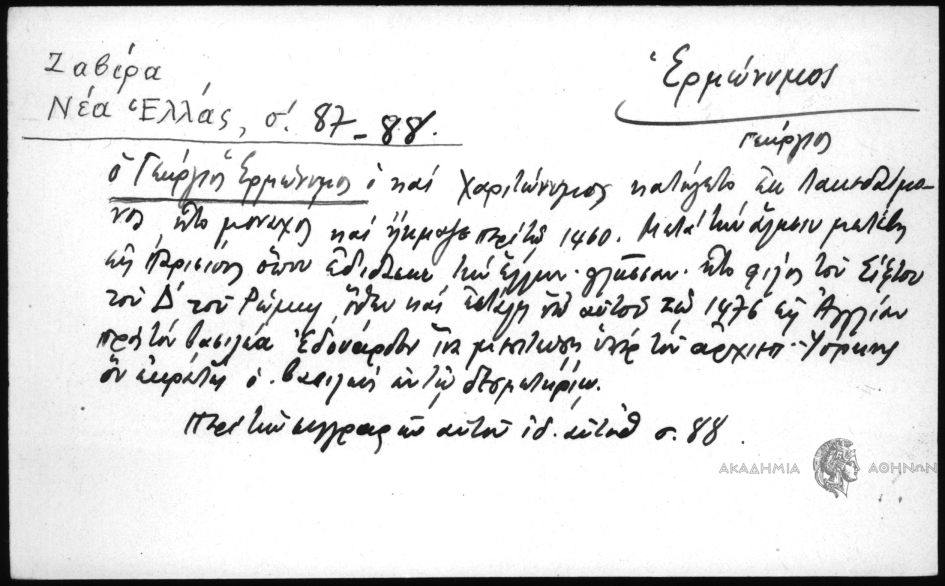 Ζαβίρα
Νέα Ἑλλάς, σ. 87-88.
Ἑρμώνυμος
Γεώργιος
ὁ Γεώργιος Ἑρμώνυμος ὁ καί Χαριτώνυμος κατήγετο ἐκ Λακεδαίμο-
νος, ἦτο μοναχός καί ἤκμαζε περί τό 1460. Μετά τήν ἅλωσιν μετέβη
εἰς Παρισίους ὅπου ἐδίδασκε τήν ἑλλην. γλῶσσαν. ἦτο φίλος τοῦ Σίξτου
τοῦ Δ' τοῦ Ρώμης, ὅθεν καί ἐστάλη ὑπ' αὐτοῦ τῷ 1476 εἰς Ἀγγλίαν
πρός τόν βασιλέα Ἐδουάρδον ἵνα μεσιτεύσῃ ὑπέρ τοῦ ἀρχιεπ. Ὑόρκης
ὅν ἐκράτει ὁ βασιλεύς ἐν τῷ δεσμωτηρίῳ.
Περί τῶν συγγραφῶν αὐτοῦ ἰδ. αὐτόθ σ. 88.
ΑΚΑΔΗΜΙΑ ΑΘΗΝΩΝ